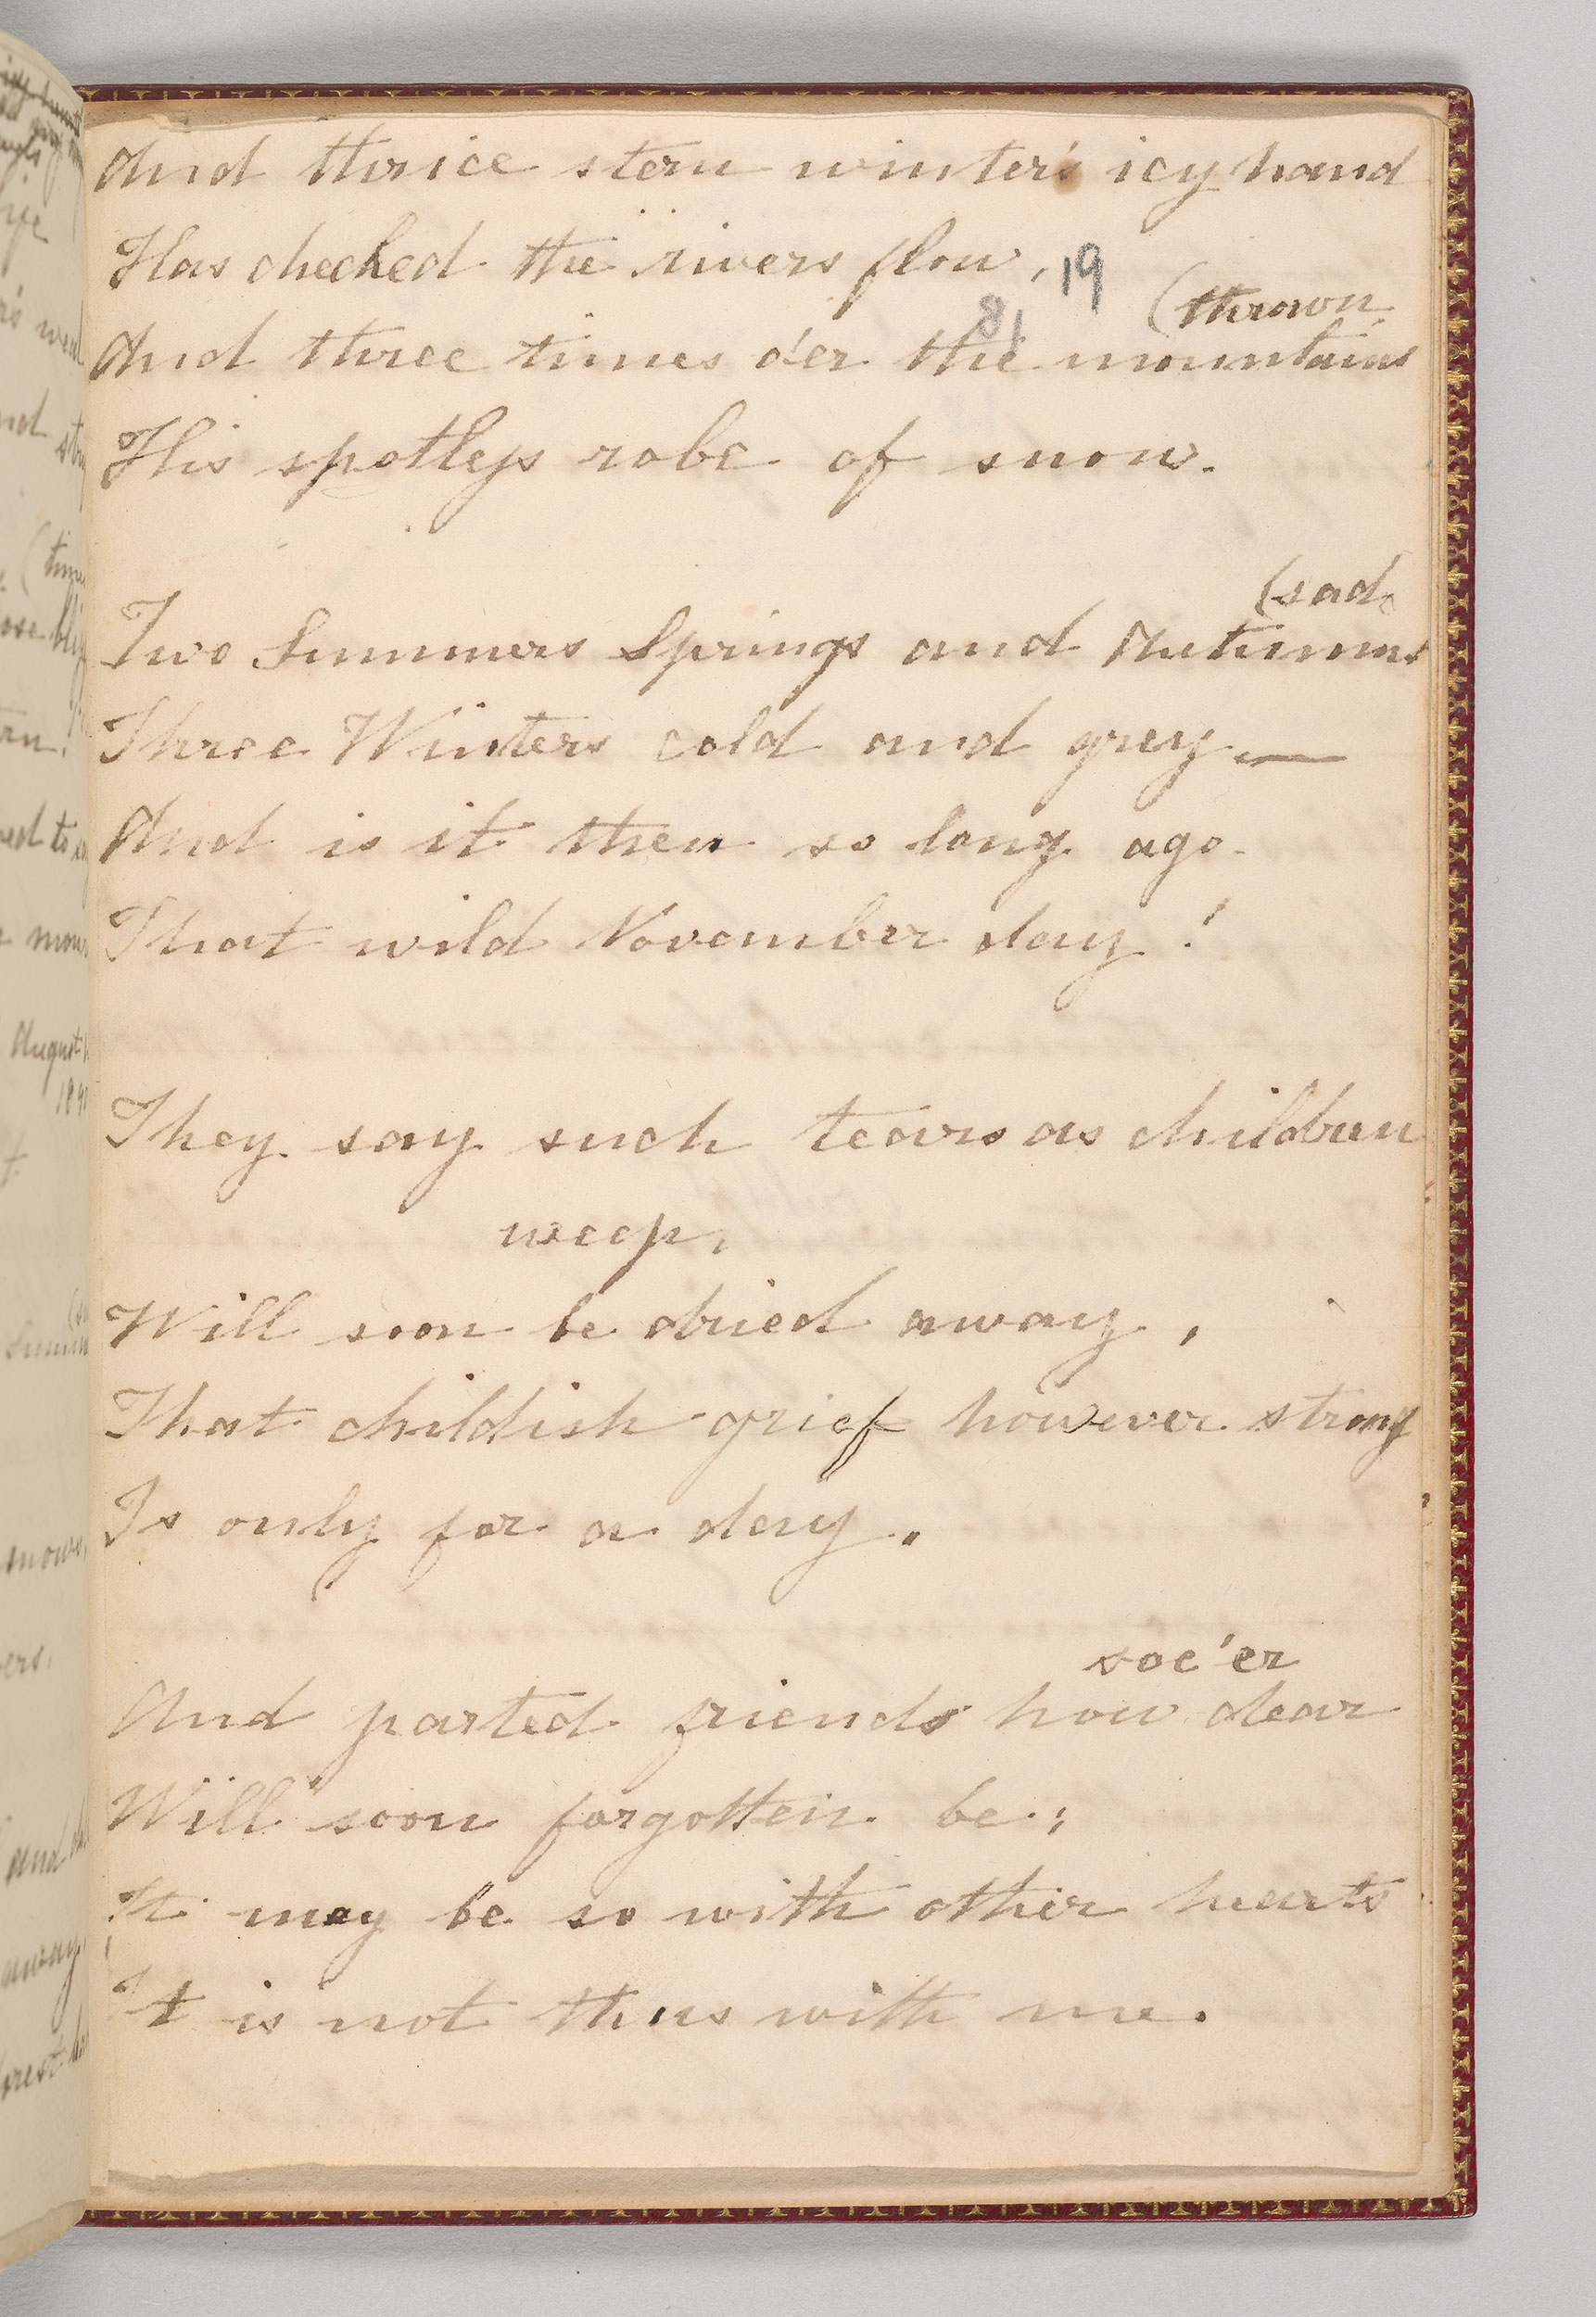 And thrice stern winter's icy hand
Has checked the rivers flow,
19
81
(thrown
And three times o'er the mountains
His spotless robe of snow.
(sad
Two Summers Springs and Autumns
Three Winters cold and grey —
And is it then so long ago
That wild November day!
They say such tears as children
weep,
Will soon be dried away,
That childish grief however strong
Is only for a day.
soe'er
And parted friends how dear
Will soon forgotten be;
It may be so with other hearts
It is not thus with me.